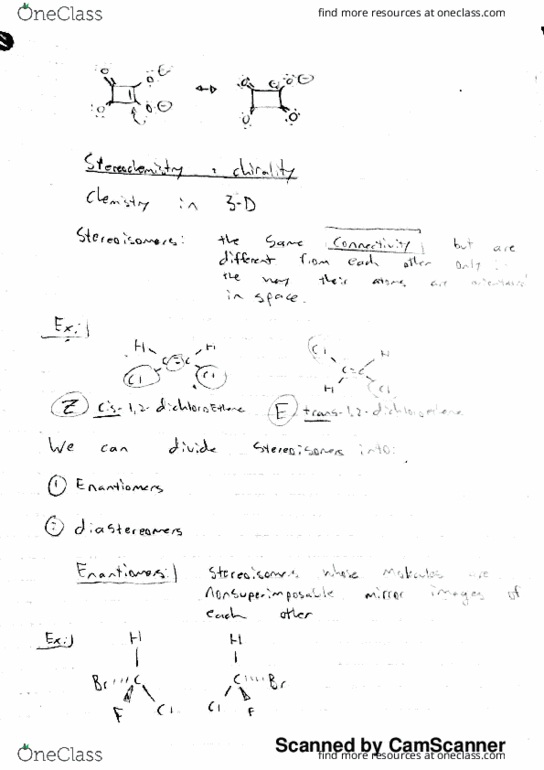 OneClass
find more resources at oneclass.com
Stereochemistry : chirality
Chemistry in 3-D
Stereoisomers: the same Connectivity, but are
different from each other only in
the way their atoms are oriented
in space.
Ex:
H H
C=C
Cl Cl
Cl H
C=C
H Cl
Z cis-1,2-dichloroEthene E trans-1,2-dichloroethene
We can divide stereoisomers into:
① Enantiomers
② diastereomers
Enantiomers: Stereoisomers whose molecules are
nonsuperimposable mirror images of
each other
Ex:
H H
Br C C Br
F Cl Cl F
Scanned by CamScanner
OneClass
find more resources at oneclass.com